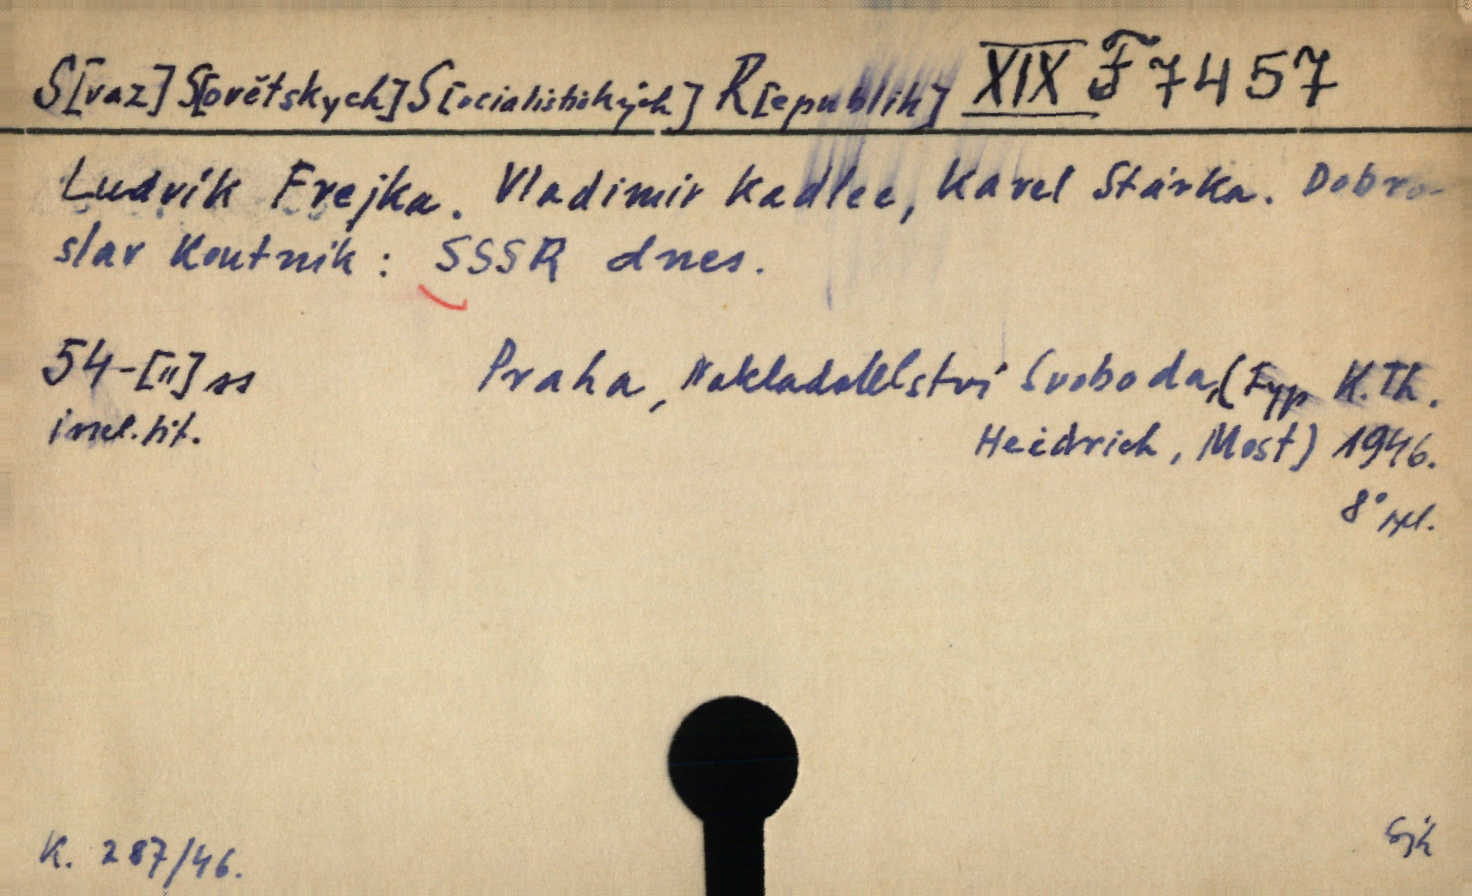 S[vaz] S[ovětskych] S[ocialistických] R[epublik] XIX F 7457
Ludvík Frejka. Vladimír Kadlec, Karel Stárka. Dobro-
slav Koutník: SSSR dnes.
54-[II] ss Praha, Nakladatelství Svoboda, (Typ K. Th.
incl. tit. Heidrich, Most) 1946.
8°
K. 287/46.